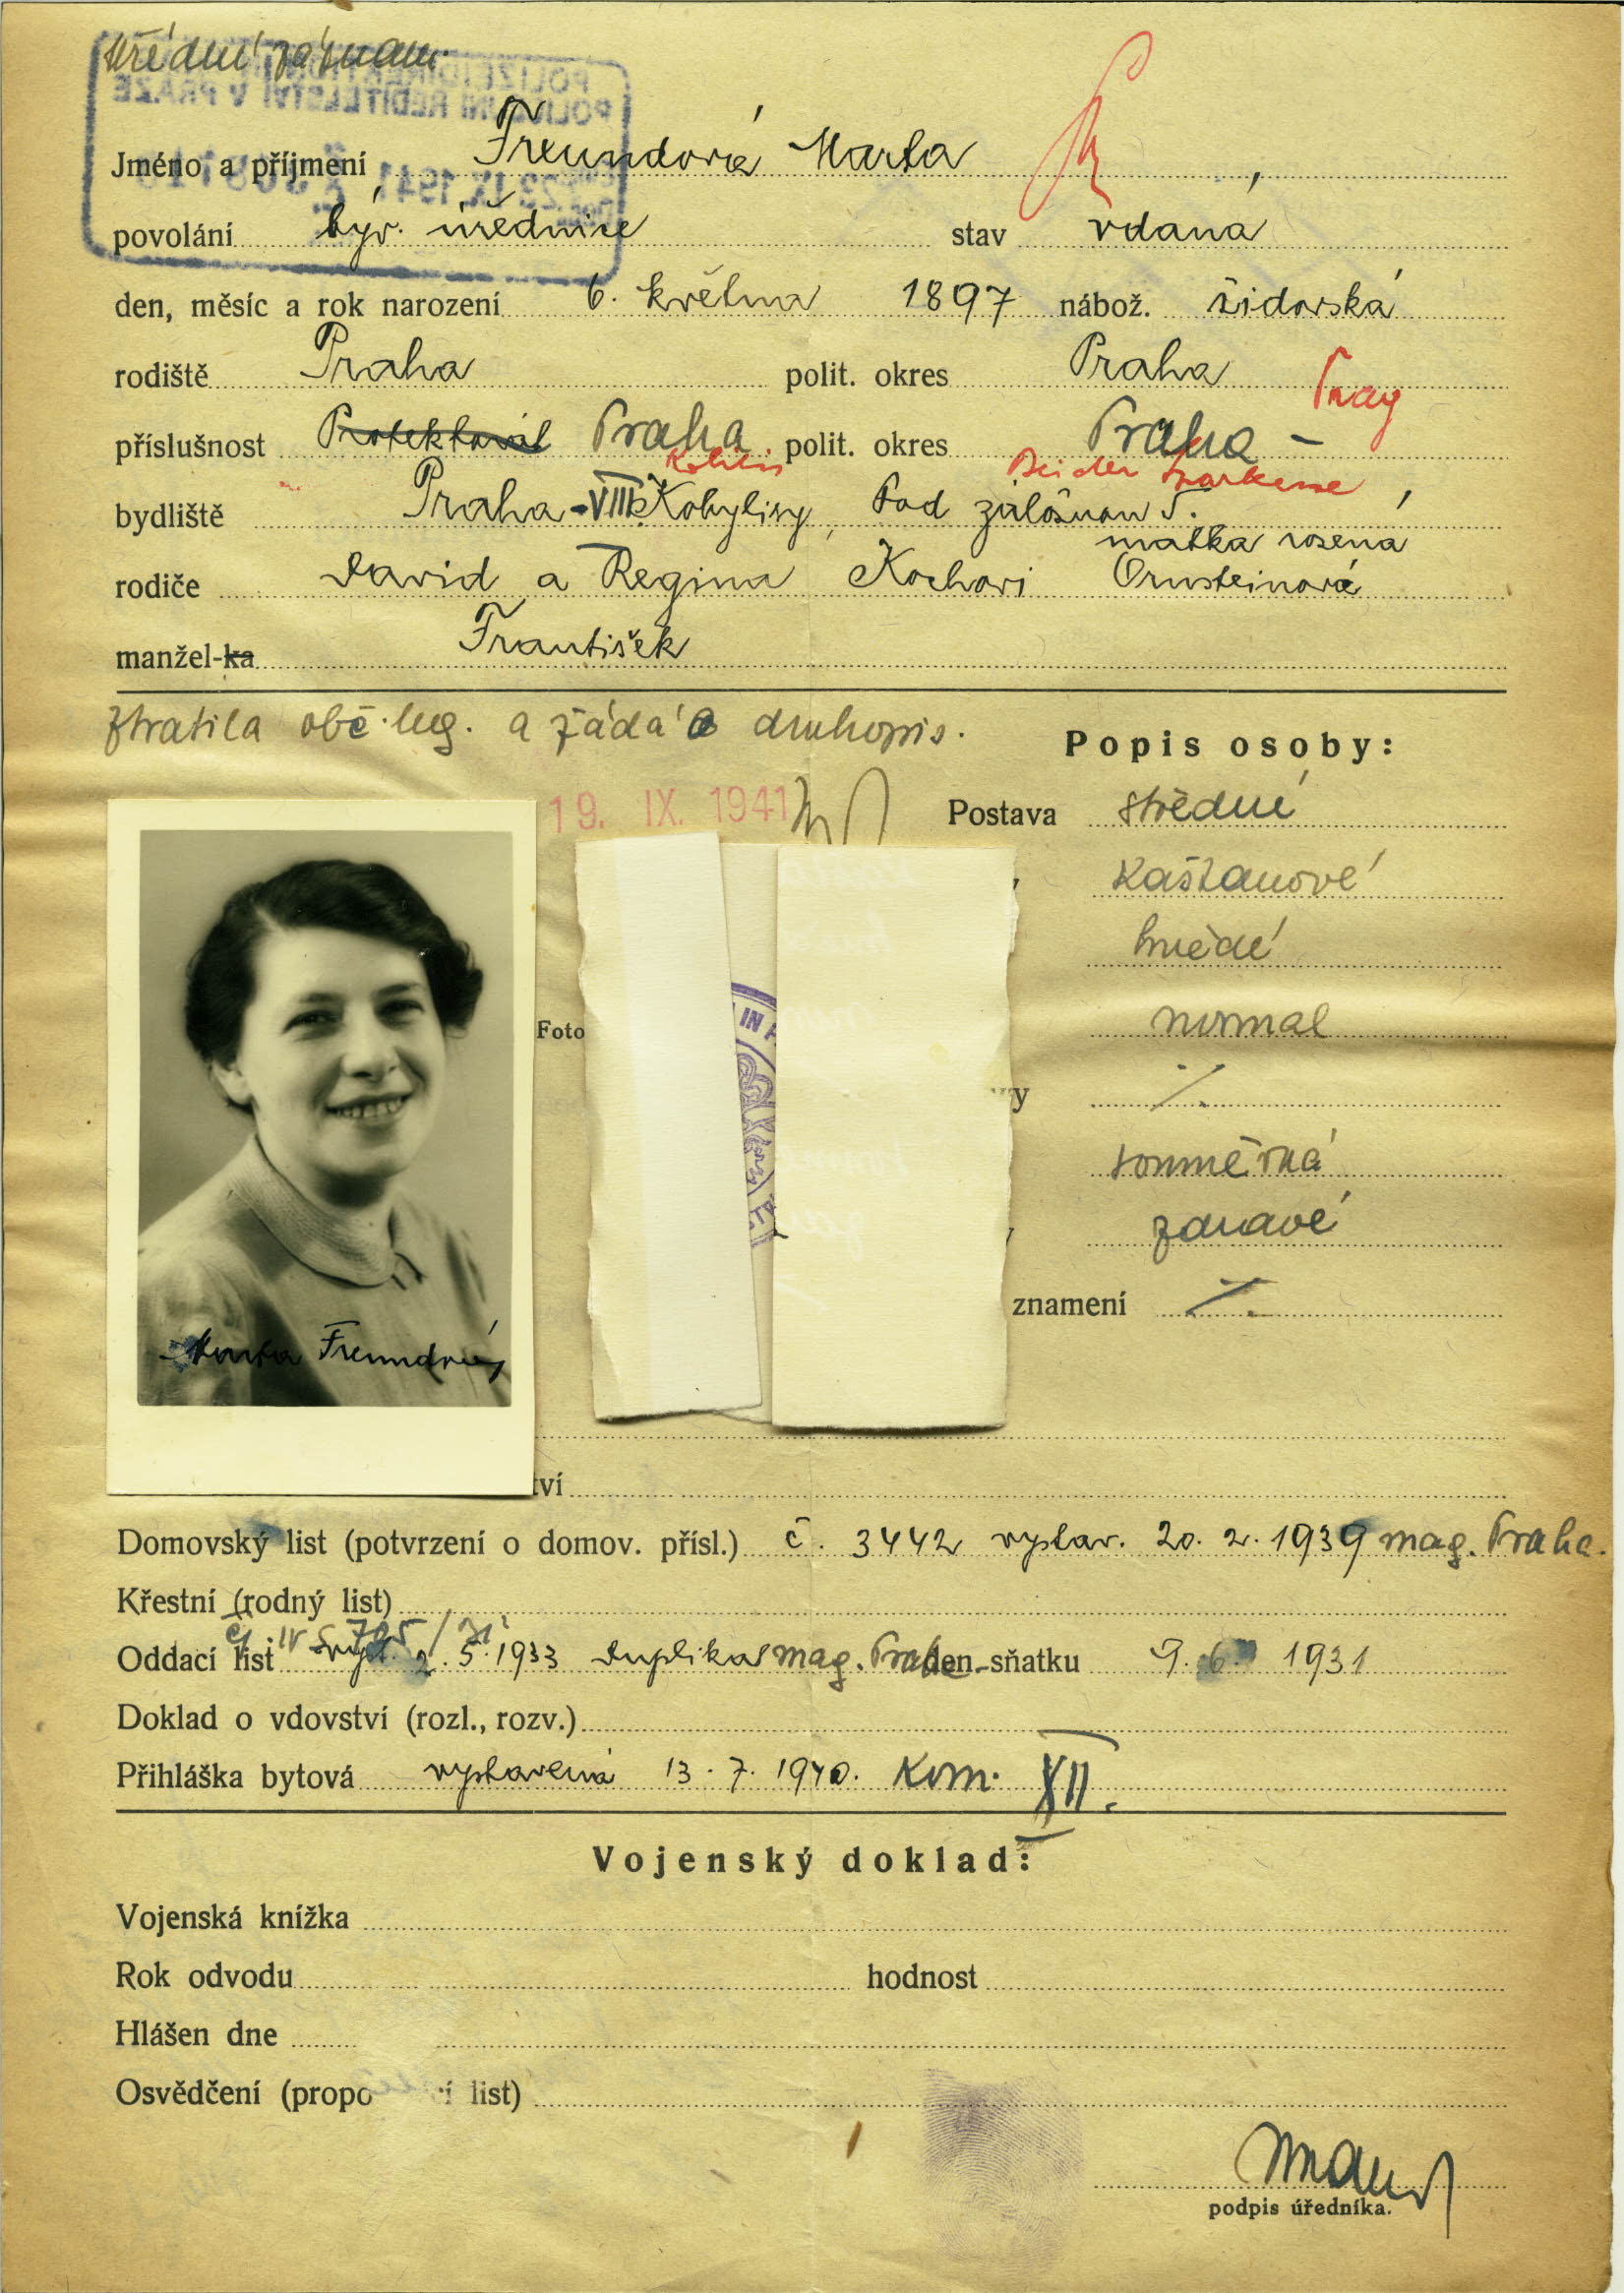 úřední záznam.
POLIZEIDIREKTION
POLICEJNÍ ŘEDITELSTVÍ V PRAZE
Jméno a příjmení Freundová Marta ,
povolání býv. úřednice stav vdaná
den, měsíc a rok narození 6. května 1897 nábož. židovská
rodiště Praha polit. okres Praha
Prag
příslušnost Protektorát Praha polit. okres Praha -
Bei der
bydliště Praha-VIII Kobylisy, Pod
matka rozená
rodiče David a Regina Kochovi Ornsteinová
manžel-ka František
Ztratila obč. leg. a žádá o druhopis.
Popis osoby:
19. IX. 1941
Postava střední
kaštanové
hnědé
normal
Foto
IN
vy ./.
souměrná
zdravé
znamení ./.
Marta Freundová
tví
Domovský list (potvrzení o domov. přísl.) č. 3442 vystav. 20. 2. 1939 mag. Praha.
Křestní (rodný list)
Oddací list 2. 5. 1933 duplikat mag. Praha den sňatku 9. 6. 1931
Doklad o vdovství (rozl., rozv.)
Přihláška bytová vystavená 13. 7. 1940. Kom. XII.
Vojenský doklad:
Vojenská knížka
Rok odvodu hodnost
Hlášen dne
Osvědčení (propo í list)
podpis úředníka.